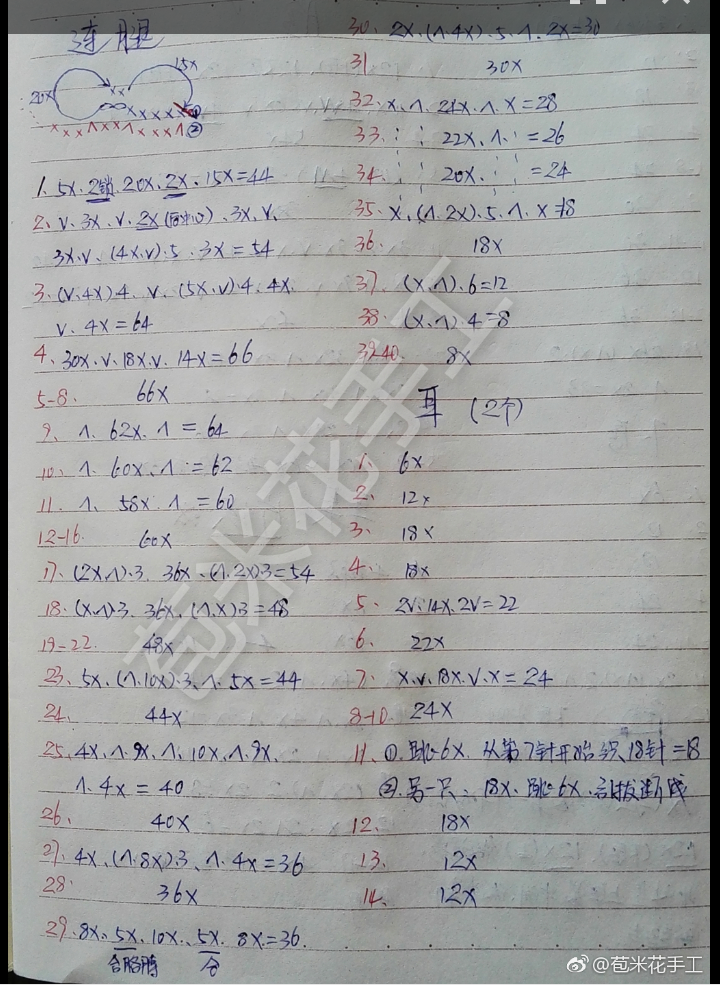 连腿
20X
15X
x x
x x x x x ①
x x x ∧ x x ∧ x x x ∧ ②
1. 5X. 2锁. 20X. 2X. 15X=44
2. V. 3X. V. 2X . 3X. V.
3X. V. (4X.V).5. 3X=54
3. (V.4X).4. V. (5X.V).4. 4X.
V. 4X=64
4. 30X.V.18X.V. 14X=66
5-8. 66X
9. ∧. 62X. ∧ = 64
10. ∧. 60X. ∧ = 62
11. ∧. 58X. ∧ = 60
12-16. 60X
17. (2X.∧).3. 36X. (∧.2X)3=54
18. (X.∧).3. 36X. (∧.X)3=48
19-22. 48X
23. 5X.(∧.10X).3.∧.5X=44
24. 44X
25. 4X.∧.9X.∧.10X.∧.9X.
∧.4X=40
26. 40X
27. 4X.(∧.8X).3.∧.4X=36
28. 36X
29. 8X. 5X. 10X. 5X. 8X=36
合胳膊 合
30. 2X.(∧.4X).5.∧.2X=30
31 30X
32. X.∧.24X.∧.X=28
33. 22X.∧. =26
34. 20X. =24
35. X.(∧.2X).5.∧.X=18
36. 18X
37. (X.∧).6=12
38. (X.∧).4=8
39-40. 8X
耳 (2个)
1. 6X
2. 12X
3. 18X
4. 18X
5. 2V.14X.2V=22
6. 22X
7. X.V.18X.V.X=24
8-10. 24X
11. ①.跳6X. 从第7针开始织18针=18
②.另一只. 18X. 跳6X. 引拔断线
12. 18X
13. 12X
14. 12X
苞米花手工
@苞米花手工